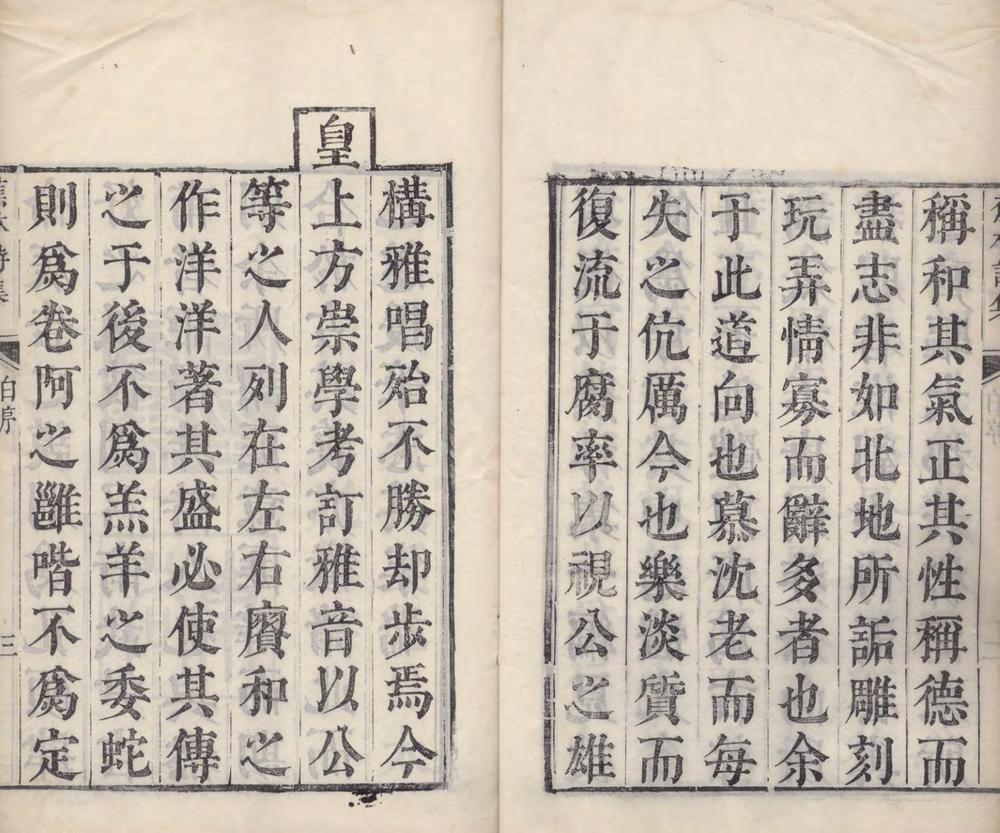 稱和其氣正其性稱德而
盡志非如北地所詬雕刻
玩弄情寡而辭多者也余
于此道向也慕沈老而每
失之伉厲今也樂淡質而
復流于腐率以視公之雄
構雅唱殆不勝却步焉今
皇
上方崇學考訂雅音以公
等之人列在左右賡和之
作洋洋著其盛必使其傳
之于後不爲羔羊之委蛇
則爲卷阿之雝喈不爲定
三